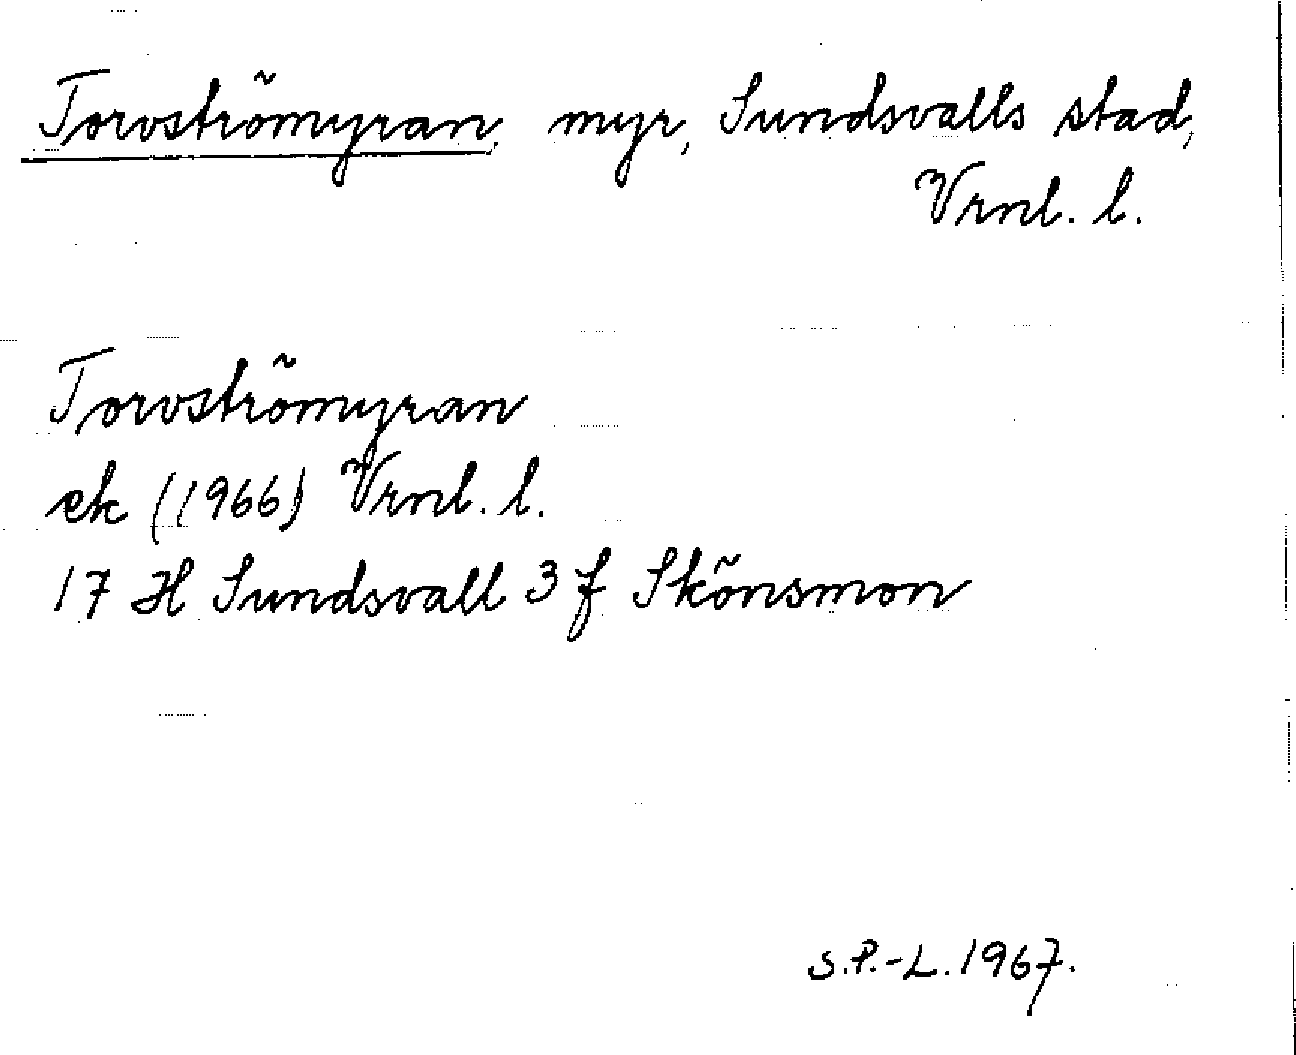 Torvströmyran, myr, Sundsvalls stad,
Vrnl. l.
Torvströmyran
ek (1966) Vrnl. l.
17 H Sundsvall 3 f Skönsmon
S.P.-L. 1967.